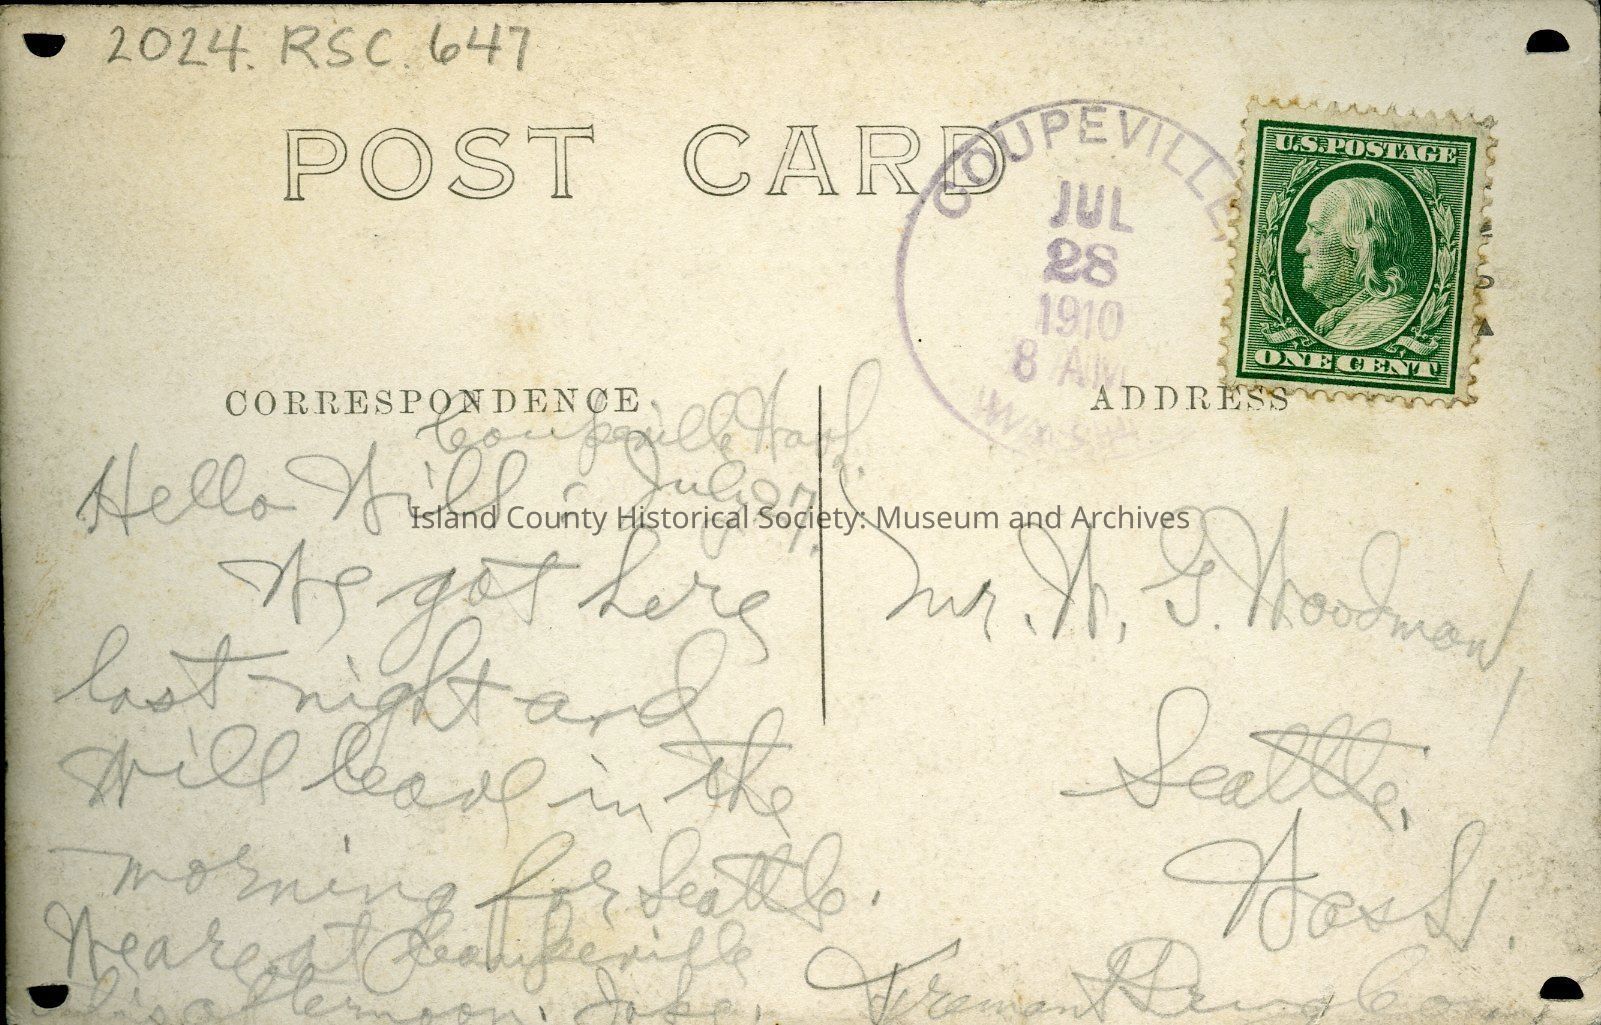 2024. RSC. 647
POST CARD
COUPEVILLE,
JUL
28
1910
8 AM
WASH.
U.S. POSTAGE
ONE CENT
CORRESPONDENCE
ADDRESS
Coupeville Wash.
July 27.
Hello Will:
We got here
last night and
will leave in the
morning for Seattle.
We are at Coupeville
this afternoon. Jake.
Mr. W. G. Woodman,
Seattle,
Wash.
Fremont Drug Co.
Island County Historical Society: Museum and Archives